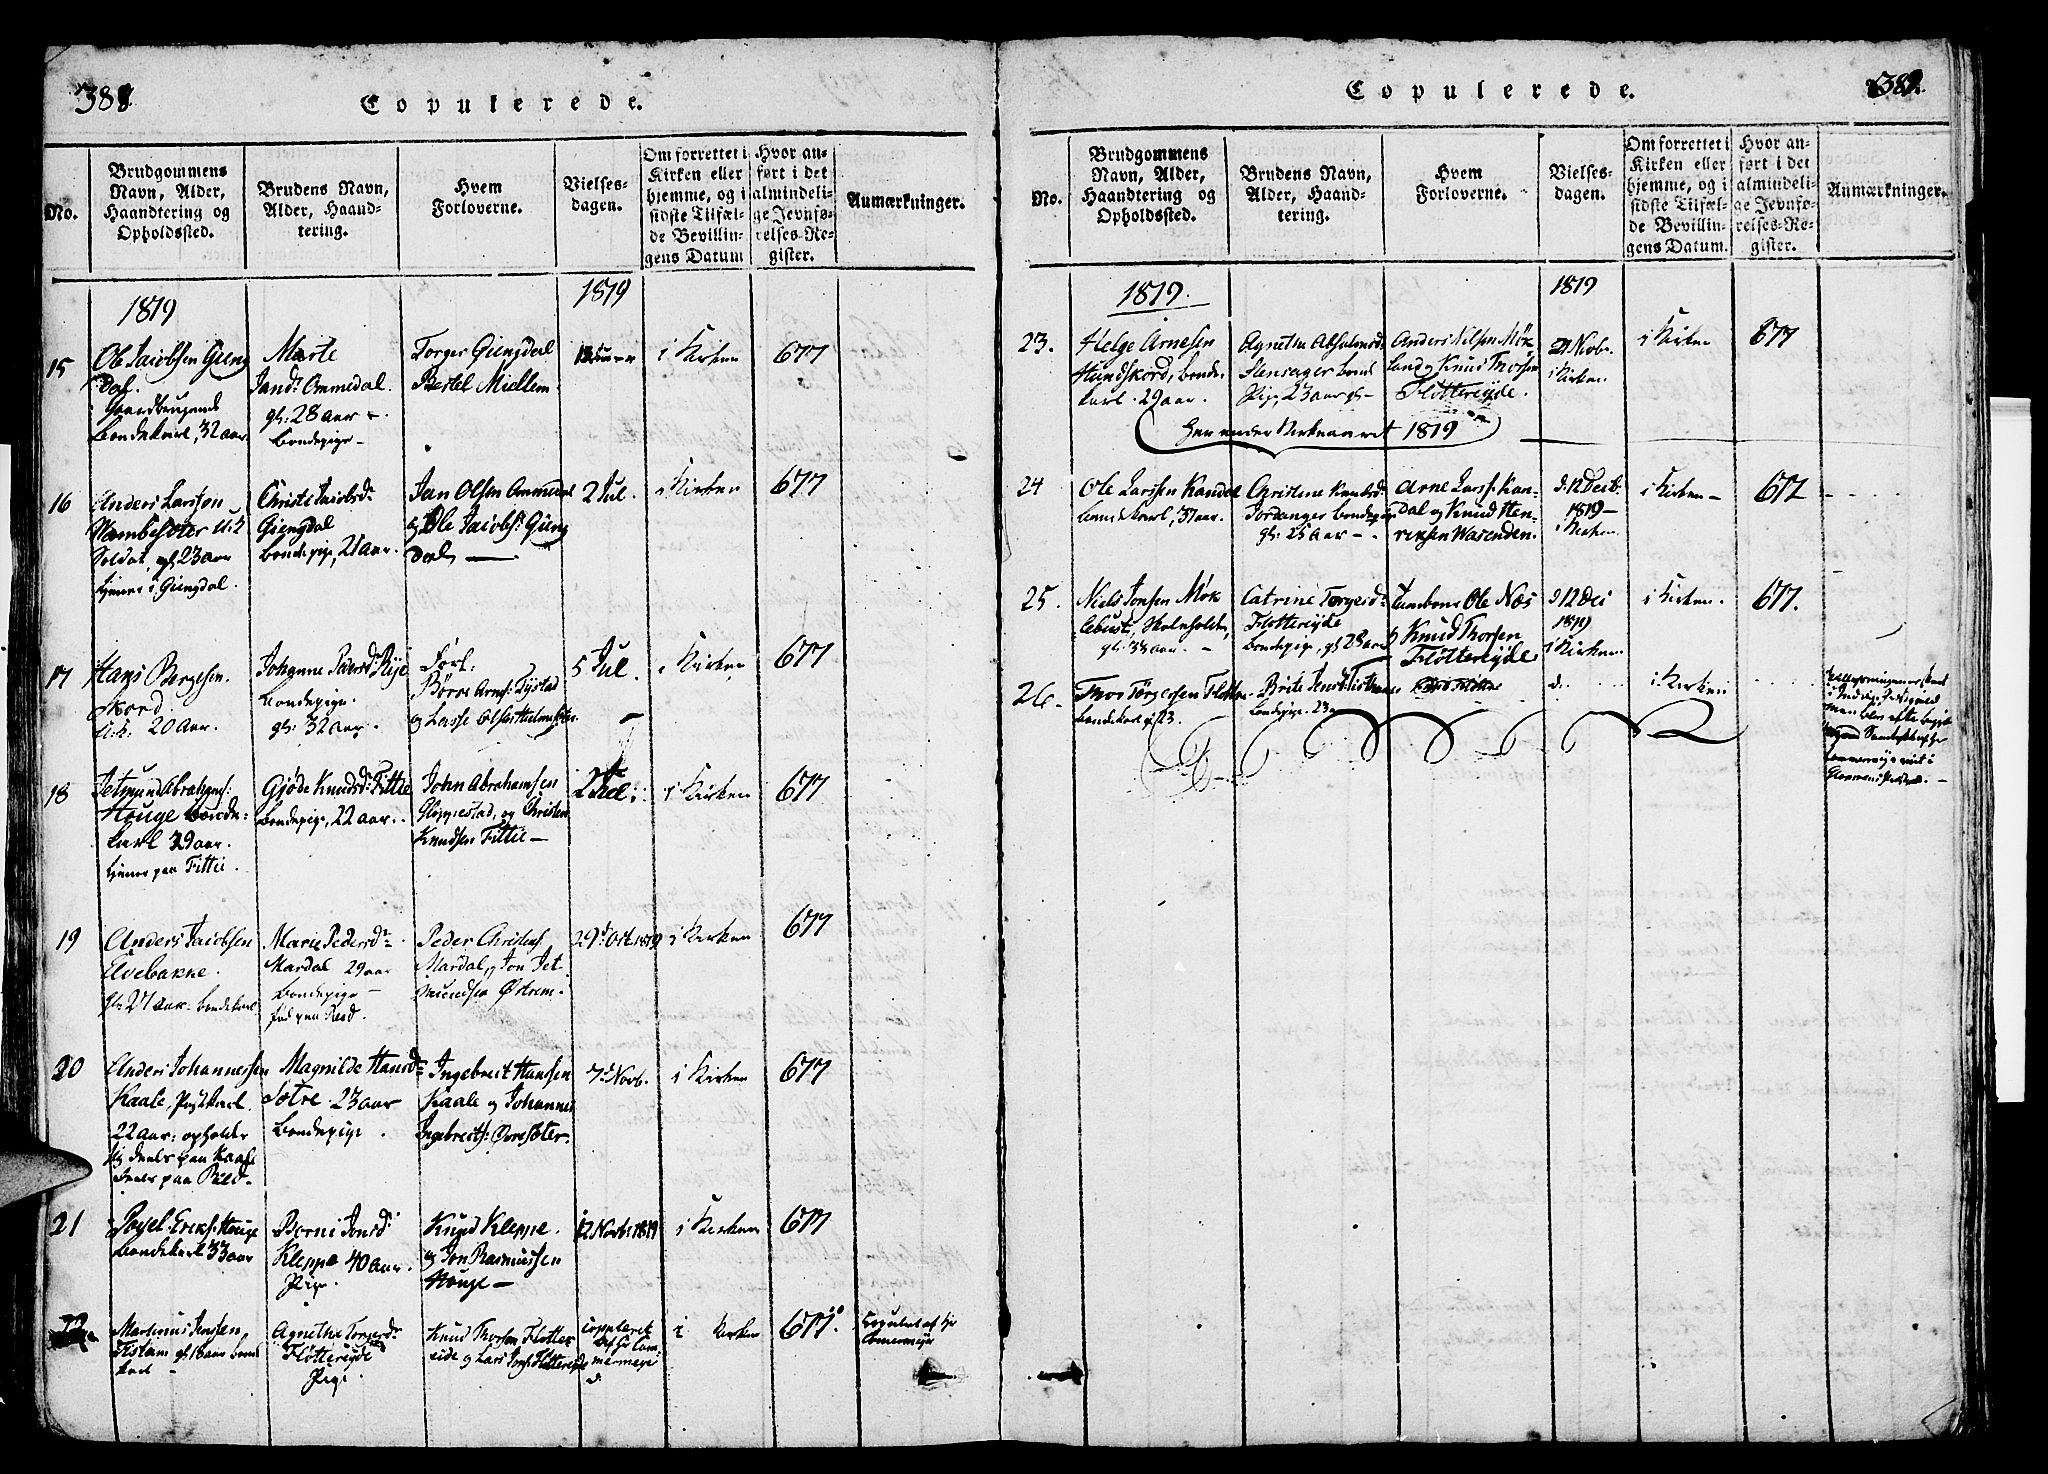 388.
Copulerede.
No.
Brudgommens
Navn, Alder,
Haandtering og
Opholdssted.
Brudens Navn,
Alder, Haand-
tering.
Hvem
Forloverne.
Vielses-
dagen.
Om forrettet i
Kirken eller
hjemme, og i
sidste Tilfæl-
de Bevillin-
gens Datum
Hvor an-
ført i det
almindeli-
ge Jevnfø-
relses-Re-
gister.
Anmærkninger.
1819
1819
15
Ole Jacobsen Gieng
Dal.
Gaardbrugende
bondekarl, 32 aar
Marte
Jansd: Ommedal.
gl: 28 aar
bondepige
Torger Giengdal
Bertel Miellem
i Kirken
677
16
Anders Larsson
Soldat, gl 23 aar
tjener i Giengdal.
Christi Jacobsd:
Giengdal
bondepige, 21 aar.
Jan Olsen Ommedal
og Ole Jacobs: Gieng
Dal
2 Jul.
i Kirken
677
17
Hans Børgesen
Skord
20 aar.
Johanne Peersd: Rye
bondepige
gl: 32 aar.
Børre Arns: Tystad
og Lasse Olsen
5 Jul.
i Kirken
677
18
Jetmund Abrahams:
Houge bonde-
karl 29 aar.
tjener paa Fittie.
Gjøde Knudsd: Fittie
bondepige, 22 aar.
John Abrahamsen
Gloppestad, og Christen
Knudsen Fittie
2 Jul:
i Kirken
677
19
Anders Jacobsen
Elvebakke
gl: 27 aar. bondekarl
Marie Pedersd:
Mardal 29 aar
bondepige
fød paa Reed.
Peder Christens:
Mardal, og Jon Jet
mundsen Østrem
29d Oct 1819
i Kirken
677
20
Anders Johannessen
Kaale, Postkarl
22 aar: opholder
sig deels paa Kaale
deels paa Reed
Magnilde Hansd:
Sætre 23 aar
bondepige.
Ingebreit Hansen
Kaale og Johannes
Ingebreits: Øvresæter
7d Novb.
i Kirken
677
21
Povel Eriks: Houge
bondekarl 33 aar
Berni Jonsd:
Kleppe 40 aar.
Pige.
Knud Kleppe
og Jon Rasmussen
Houge
12 Novb: 1819
i Kirken
677
22
Martinus Jensen
gl 18 aar bonde
karl
Agnethe Torgersd:
Fløttereyde
Pige
Knud Thorsen Fløtte
reide og Lars Jons: Fløttereyde
copuleret
i Kirken
677.
Copuleret af Hr
Commermeyer
389.
Copulerede.
No.
Brudgommens
Navn, Alder,
Haandtering og
Opholdssted.
Brudens Navn,
Alder, Haand-
tering.
Hvem
Forloverne.
Vielses-
dagen.
Om forrettet i
Kirken eller
hjemme, og i
sidste Tilfæl-
de Bevillin-
gens Datum.
Hvor an-
ført i det
almindeli-
ge Jevnfø-
relses-Re-
gister.
Anmærkninger.
1819.
1819
23.
Helge Arnesen
Hundskord, bonde
karl. 29 aar.
Agnethe Absalonsd:
Stensager bonde
Pige, 23 aar gl
Anders Nilsen Møk
land og Knud Thorsen
Fløttereyde.
21 Novbr.
i Kirken
i Kirken
677
Her ender Kirkeaaret 1819
24
Ole Larssen Kandal
bondekarl, 37 aar.
Christine Knudsd:
Jordanger bondepige
gl: 25 aar
Arne Larss: Kan-
dal og Knud Hen-
riksen Warenden.
d: 12 Decb:
1819
i Kirken
i Kirken
677
25.
Niels Jonsen Møk
lebust, Skoleholder,
gl: 33 aar.
Catrine Torgersd:
Fløttereyde
bondepige, gl 28 aar
Ole Næs
og Knud Thorsen
Fløttereyde
d 12 Dec
1819
i Kirken
i Kirken.
677.
26.
Thor Torgersen Fløtte
bondekarl gl 23.
Brite Jensd:
bondepige. 23
d.
i Kirken